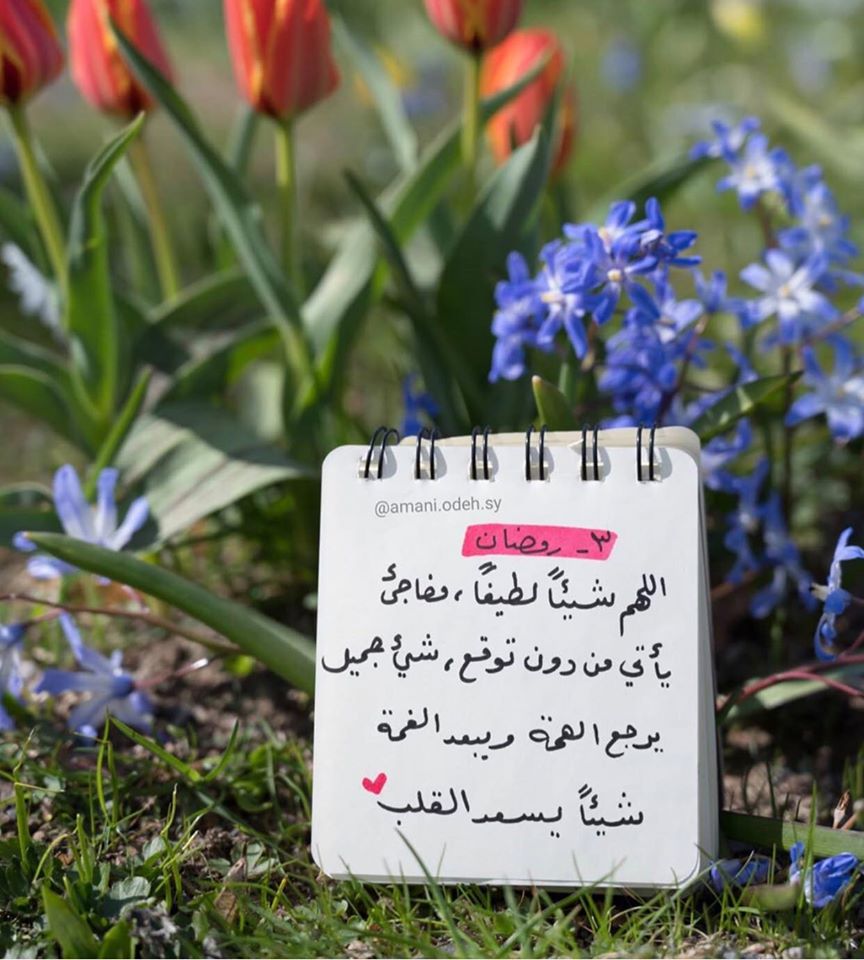 @amani.odeh.sy
٣- رمضان
اللهم شيئاً لطيفاً، مفاجئ
يأتي من دون توقع، شيئ جميل
يرجع الهمة ويبعد الغمة
شيئاً يسعد القلب